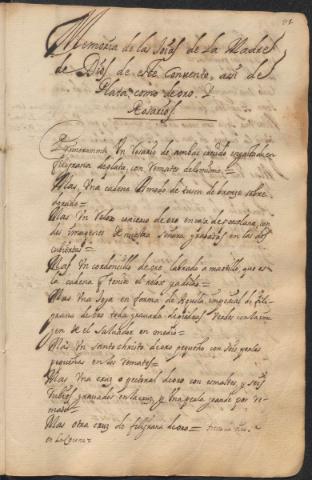 Memoria de las Joias de La Madre
de Dios de este Convento, assi de
Plata, como de oro, Y
Rosarios
Primeramente Un Rosario de ambar engastado en
filigrana de plata, con remates de lo mismo =
Mas Una cadena Amodo de tuson de bronze sobre
dorado =
Mas Un Relox con caxa de oro en caxa de
dos imagenes de nuestra señora gravadas en las dos
cubiertas =
Mas Un cordoncillo de oro labrado a martillo, que es
la cadena q tenia el relox ya dicho =
Mas Una Joya en forma de Aguila imperial de fili
grana de oro toda gravada de piedras Verdes con la ima
jen de el Salvador en medio =
Mas Un santo christo de oro pequeño con seis perlas
pequeñas en los remates =
Mas Una cruz o pectoral de oro con esmaltes, y seis
rubies gravados en la cruz, y Una perla grande por re
mate =
Mas otra cruz de filigrana de oro =